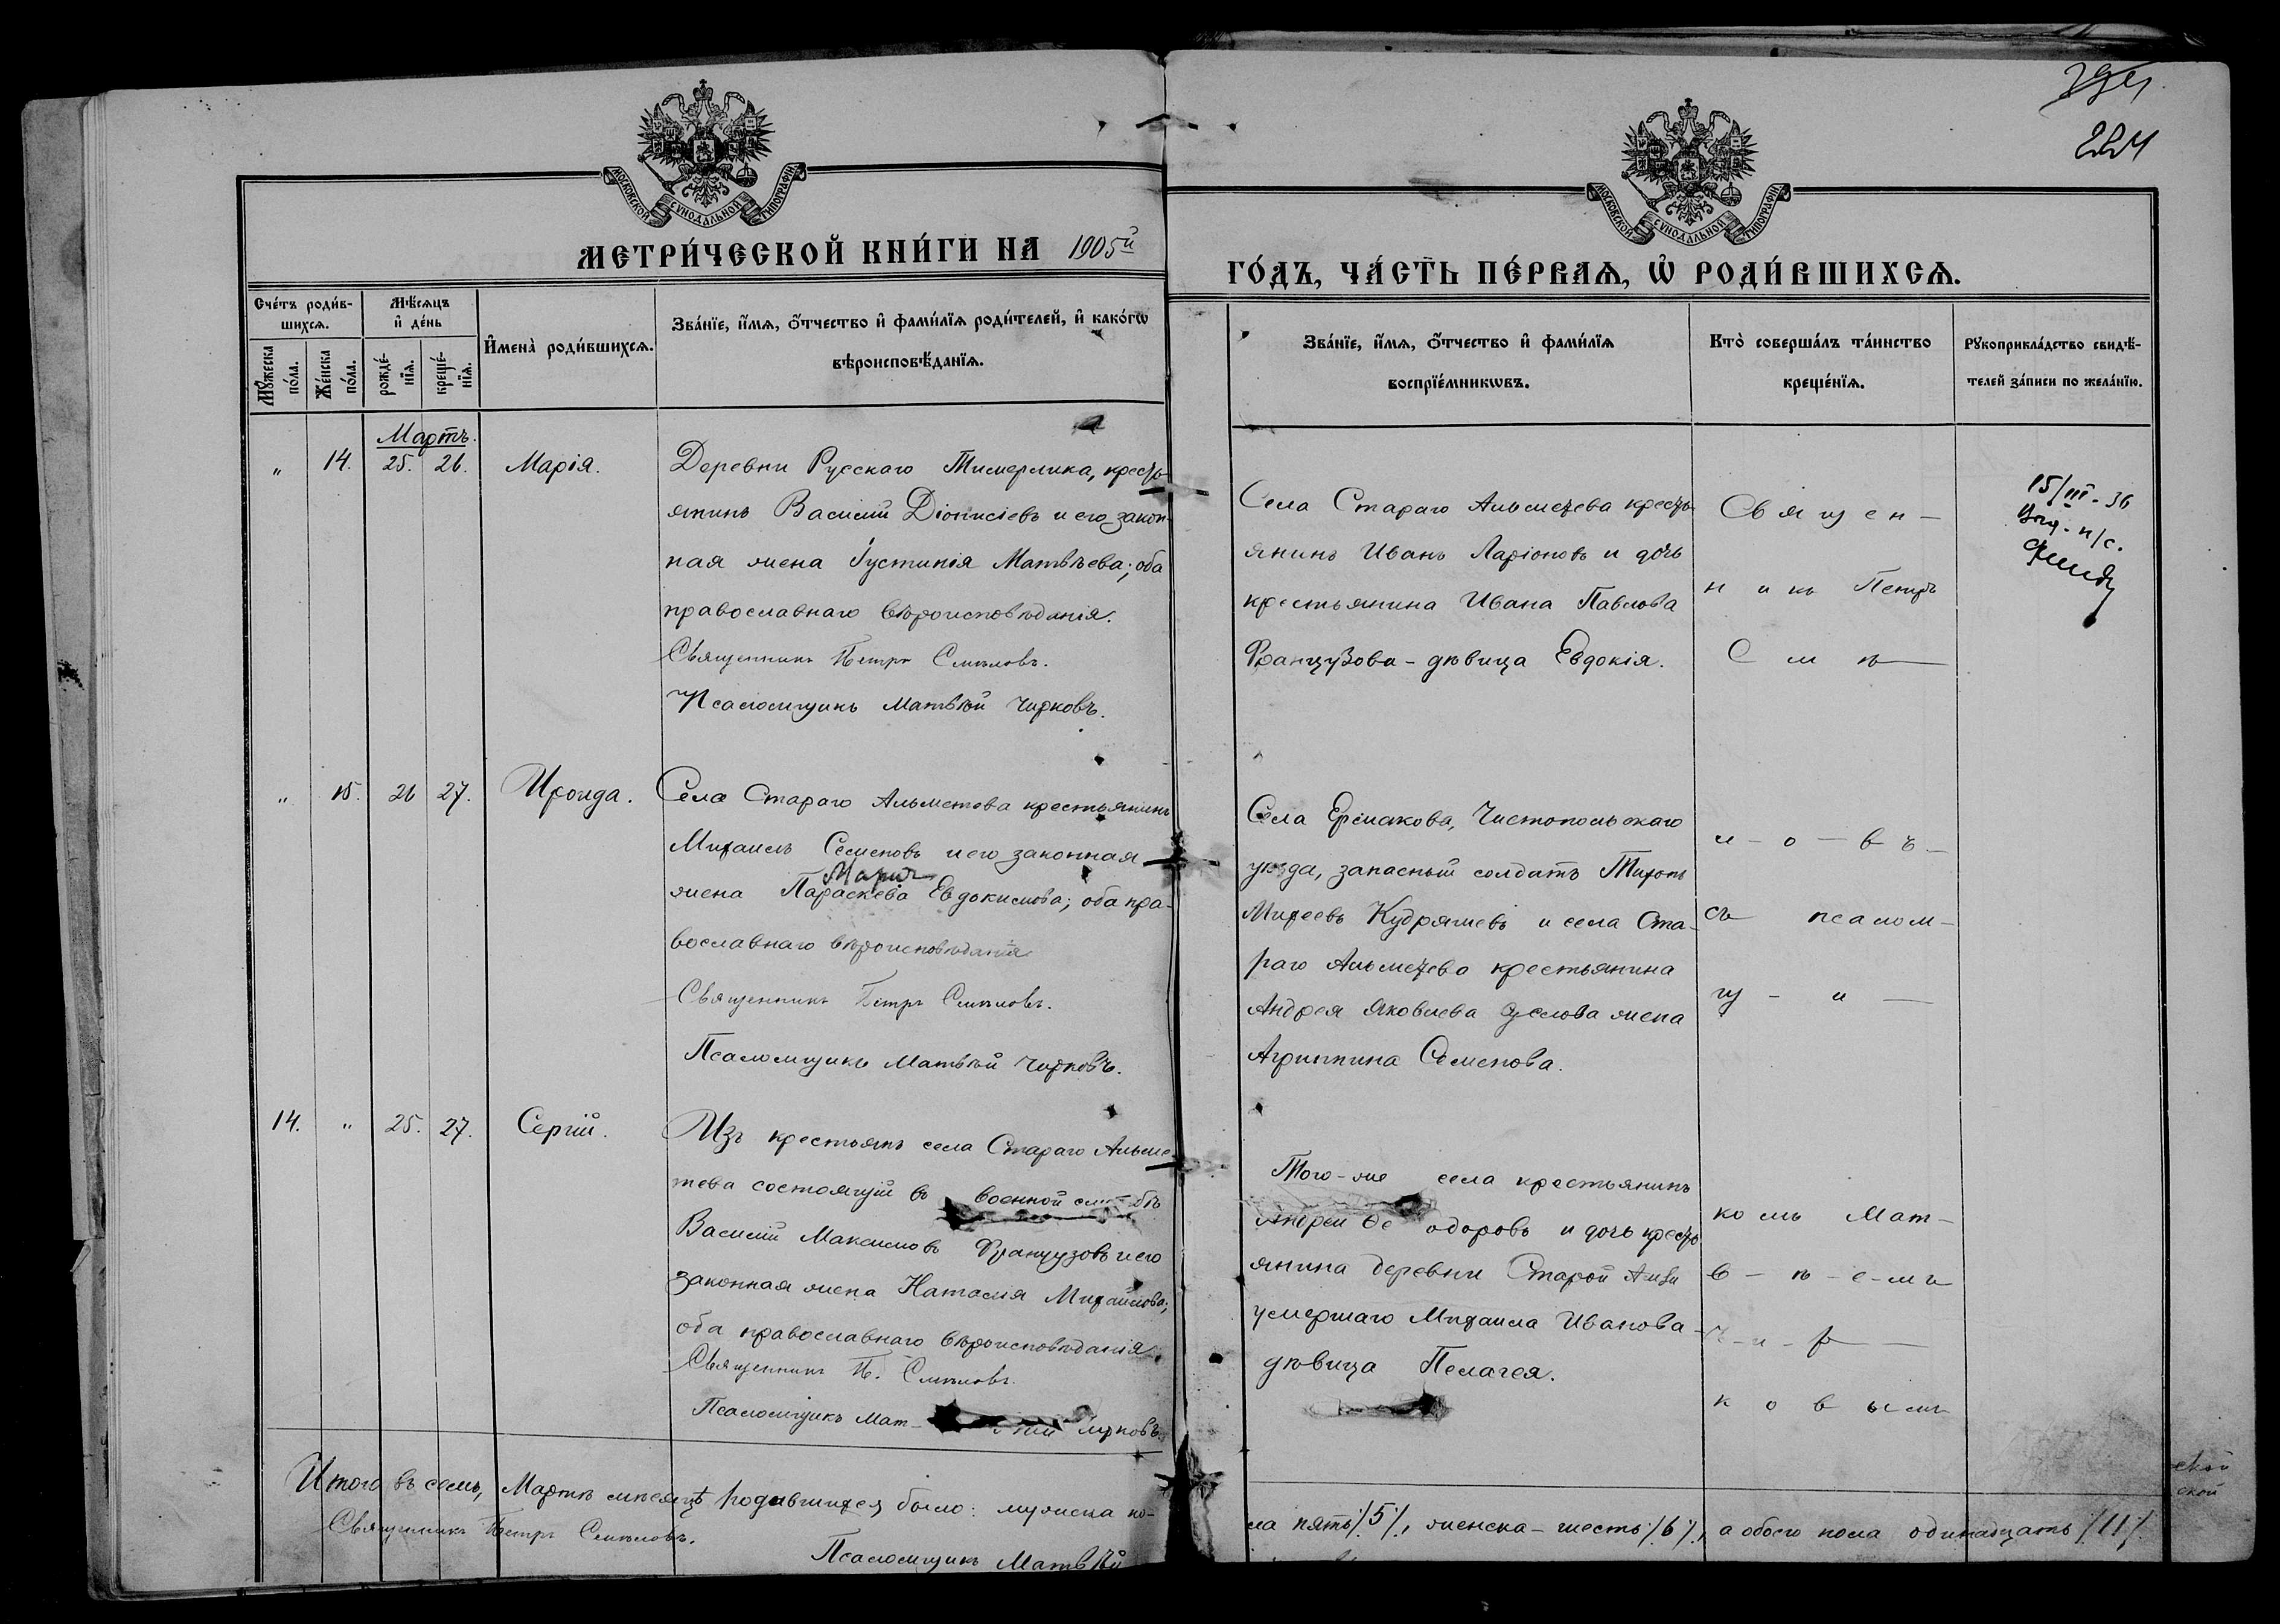 224
МОСКОВСКОЙ СУНОДАЛЬНОЙ ТИПОГРАФІИ
МОСКОВСКОЙ СУНОДАЛЬНОЙ ТИПОГРАФІИ
МЕТРИ́ЧЕСКОЙ КНИ́ГИ НА 1905й
ГО́ДЪ, ЧА́СТЬ ПЕ́РВАѦ, Ѽ РОДИ́ВШИХСѦ.
Сче́тъ роди́в-
шихсѧ.
Мꙋ́жеска
по́ла.
Же́нска
по́ла.
Мѣ́сѧцъ
и҆ де́нь
рожде́-
нїѧ.
креще́-
нїѧ.
И҆мена̀ роди́вшихсѧ.
Зва́нїе, и҆́мѧ, ѻ҆́тчество и҆ фами́лїѧ роди́телей, и҆ како́гѡ
вѣроисповѣ́данїѧ.
Зва́нїе, и҆́мѧ, ѻ҆́тчество и҆ фами́лїѧ
воспрїе́мникѡвъ.
Кто̀ соверша́лъ та́инство
креще́нїѧ.
Рꙋкоприкла́дство свидѣ́-
телей за́писи по жела́нїю.
Мартъ.
" 14. 25. 26. Марія.
Деревни Русскаго Тимерлика, кресть-
янинъ Василій Діонисіевъ и его закон-
ная жена Іустинія Матвѣева; оба
православнаго вѣроисповѣданія.
Священникъ Петръ Смѣловъ.
Псаломщикъ Матвѣй Чирковъ.
Села Стараго Альметева кресть-
янинъ Иванъ Ларіоновъ и дочь
крестьянина Ивана Павлова
Французова - дѣвица Евдокія.
Священ-
никъ Петръ
Смѣ-
15/III-36
" 15. 26 27. Ироида.
Села Стараго Альметева крестьянинъ
Михаилъ Семеновъ и его законная
Марія
жена Параскева Евдокимова; оба пра-
вославнаго вѣроисповѣданія
Священникъ Петръ Смѣловъ.
Псаломщикъ Матвѣй Чирковъ.
Села Ерсмакова, Чистопольскаго
уѣзда, запасный солдатъ Тихонъ
Михеевъ Кудряшевъ и села Ста-
раго Альметево крестьянина
Андрея Яковлева жена
Агриппина Семенова.
л-о-въ-
съ псалом-
щ-и-
14. " 25. 27. Сергій.
Изъ крестьянъ села Стараго Альме-
тева состоящій въ военной службѣ
Василій Максимовъ Французовъ и его
законная жена Наталія Михайлова;
оба православнаго вѣроисповѣданія.
Священникъ П. Смѣловъ.
Псаломщикъ Мат-вѣй Чирковъ.
Того-же села крестьянинъ
Андрей Ѳеодоровъ и дочь кресть-
янина деревни Старой
умершаго Михаила Иванова -
дѣвица Пелагея.
комъ Мат-
в-ѣ-е-мъ
Ч-и-р-
ковымъ
Итого въ семъ, Мартѣ мѣсяцѣ родившихся было: мужска по-
ла пять /5/, женска - шесть /6/, а обоего пола одинадцать /11/.
Священникъ Петръ Смѣловъ.
Псаломщикъ Матвѣй